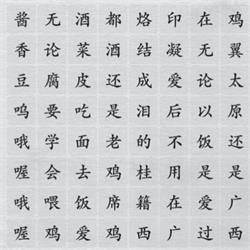 酱无酒都烙印在鸡
香论菜酒结凝无翼
豆腐皮还成爱论太
呜要吃是泪后以原
哦学面老的不饭还
喔会去鸡桂用是是
哦喂饭席籍在爱广
喔爱鸡鸡西广过西